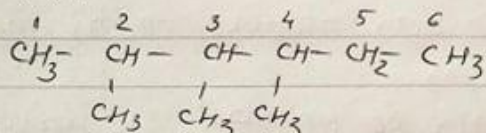 1 2 3 4 5 6
CH3- CH- CH- CH- CH2- CH3
CH3 CH3 CH3